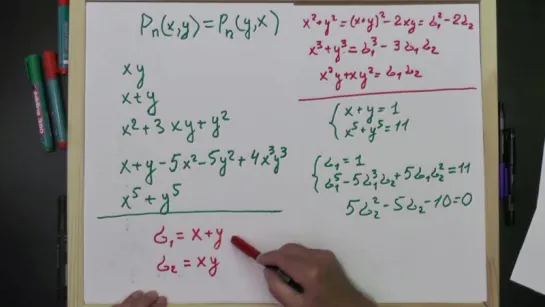 Pₙ(x,y) = Pₙ(y,x)
xy
x+y
x²+3xy+y²
x+y-5x²-5y²+4x³y³
x⁵+y⁵
σ₁ = x+y
σ₂ = xy
x²+y²=(x+y)²-2xy=σ₁²-2σ₂
x³+y³=σ₁³-3σ₁σ₂
x²y+xy²=σ₁σ₂
{ x+y=1
x⁵+y⁵=11
{ σ₁=1
σ₁⁵-5σ₁³σ₂+5σ₁σ₂²=11
5σ₂²-5σ₂-10=0